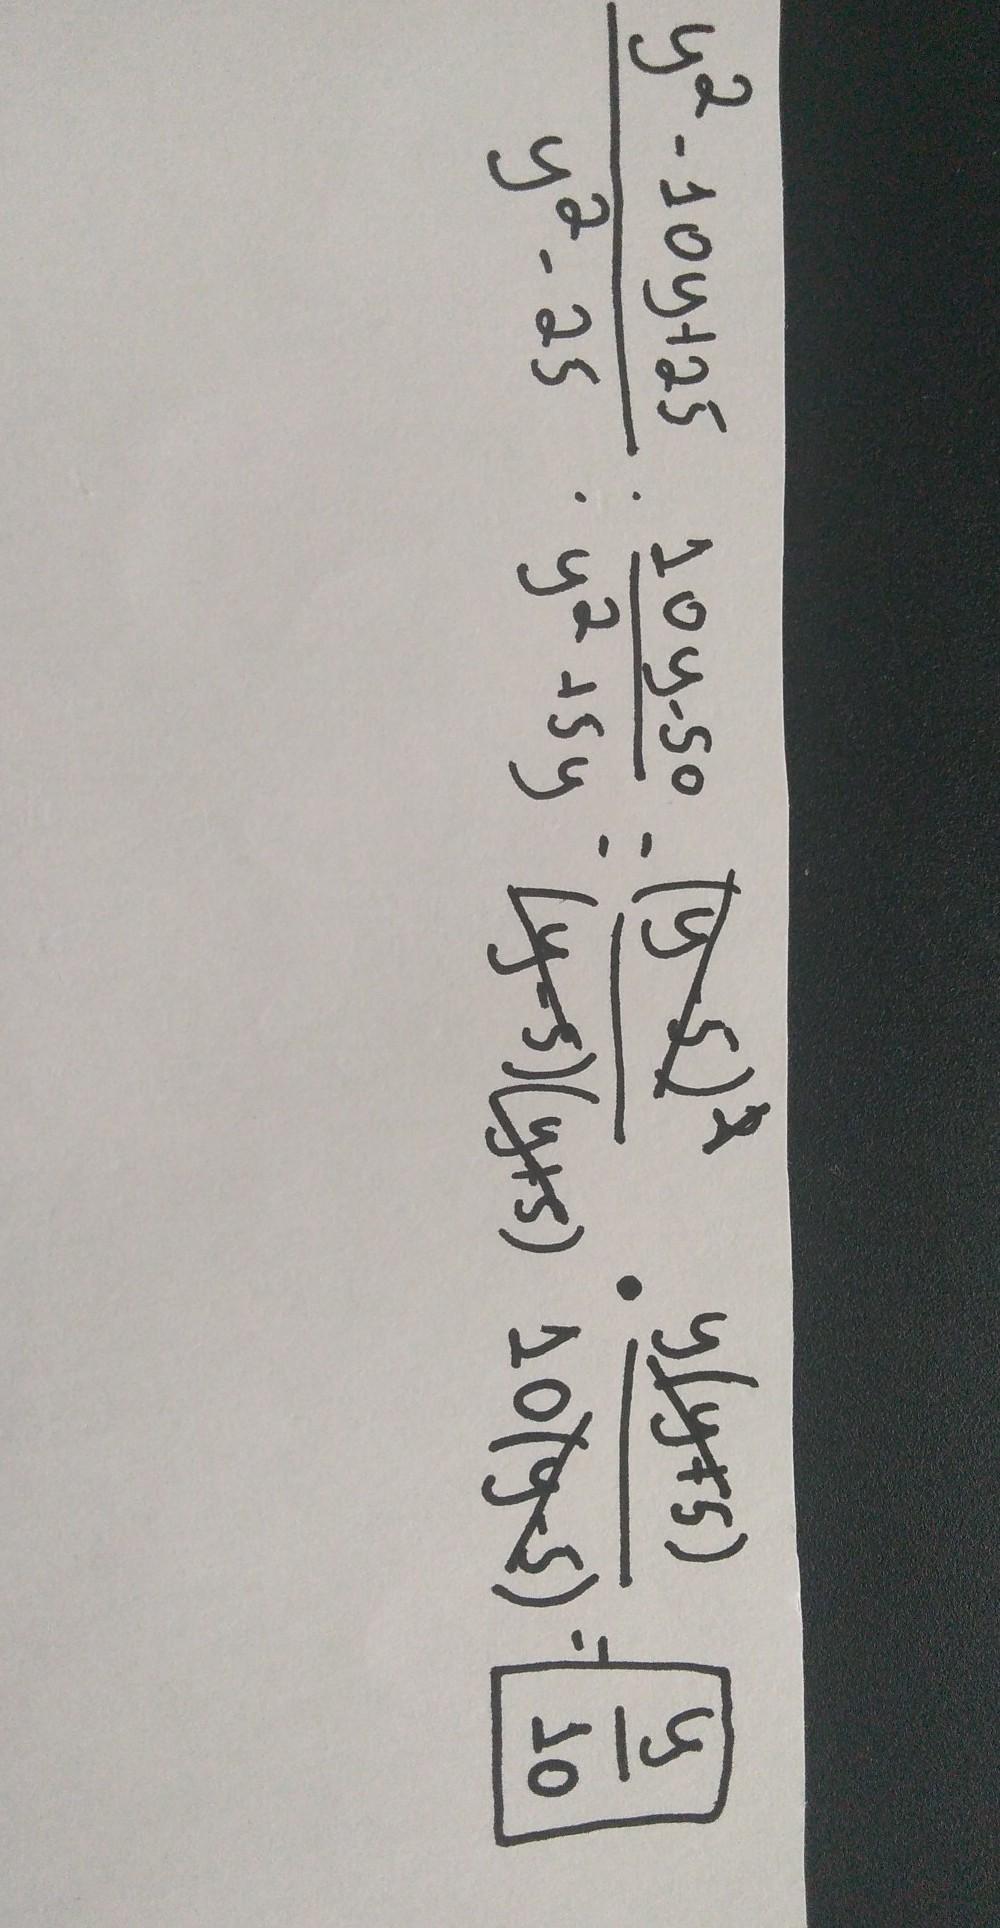 y² - 10y + 25 / y² - 25 : 10y - 50 / y² + 5y = (y - 5)² / (y - 5)(y + 5) • y(y + 5) / 10(y - 5) = y / 10